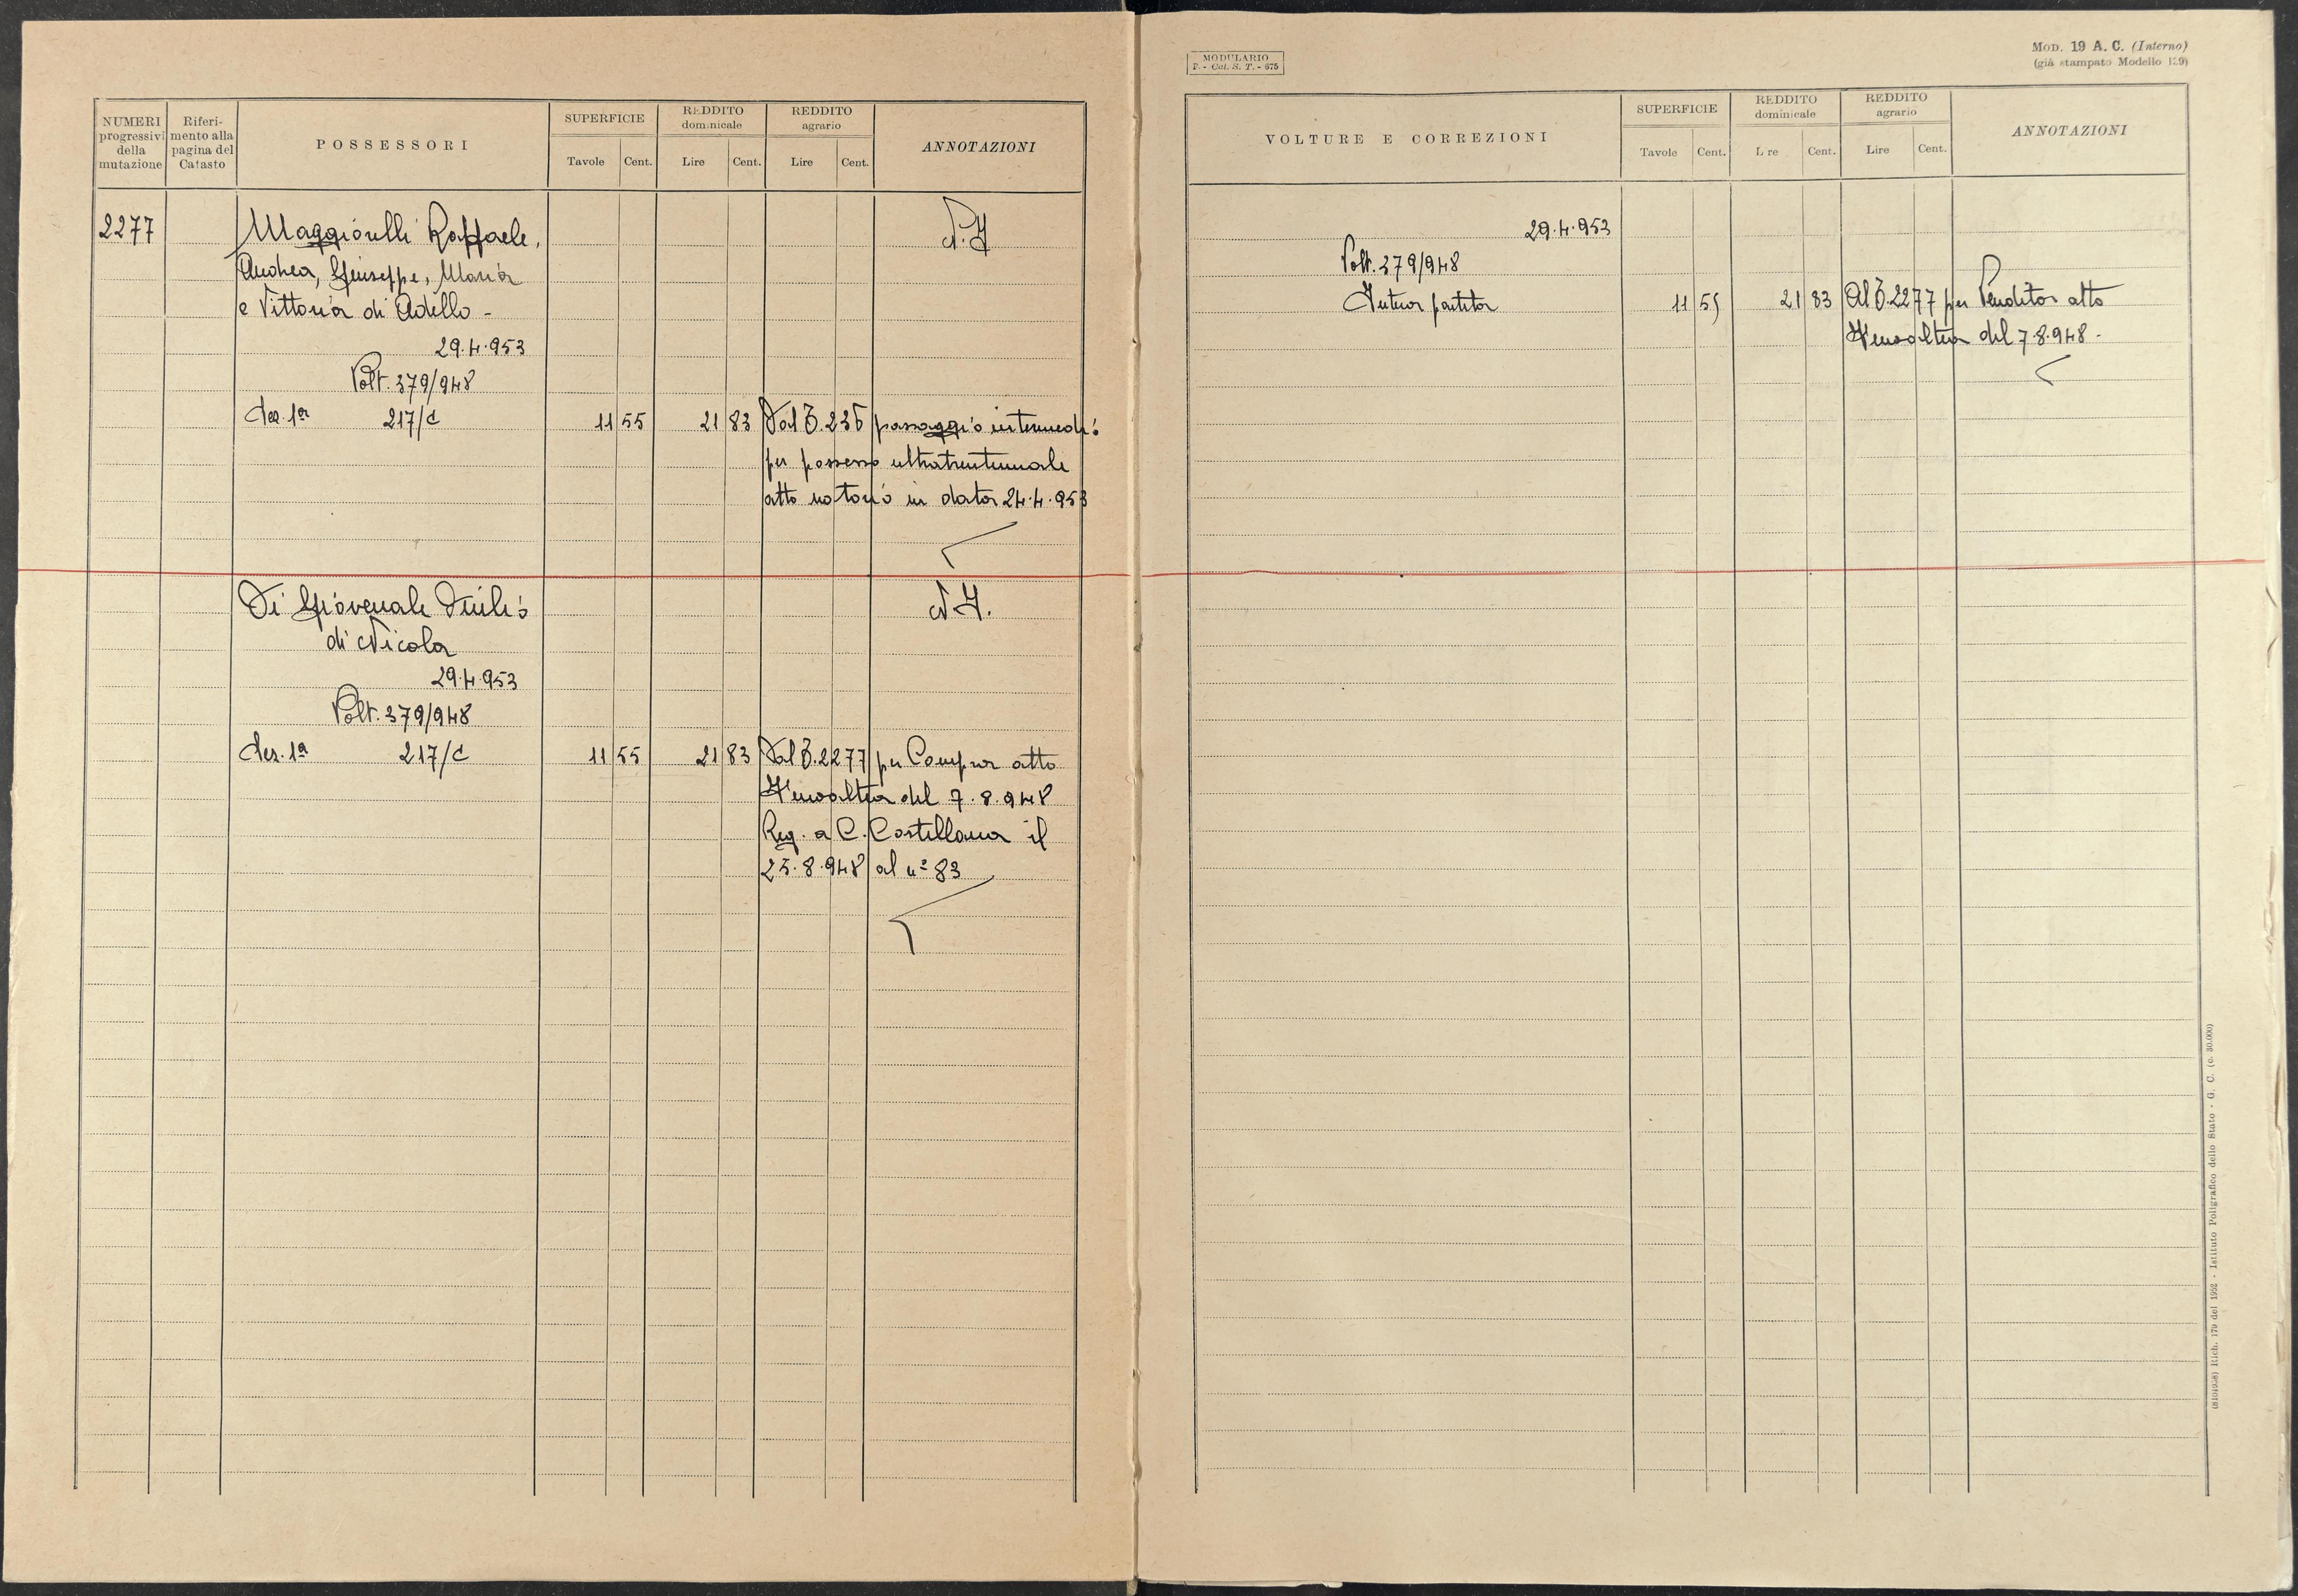 NUMERI progressivi della mutazione
Riferimento alla pagina del Catasto
POSSESSORI
SUPERFICIE
Tavole Cent.
REDDITO dominicale
Lire Cent.
REDDITO agrario
Lire Cent.
ANNOTAZIONI
2277 Maggiorelli Raffaele,
Andrea, Giuseppe, Maria
e Vittoria di Adello -
29.4.953
Volt. 379/948
Sez. 1a 217/c 11 55 21 83 Dal T. 235 passaggio intermedio
per possesso ultratrentennale
atto notorio in data 24.4.953
Di Giovenale Duilio N.I.
di Nicola
29.4.953
Volt. 379/948
Sez. 1a 217/c 11 55 21 83 Dal T. 2277 per Compra atto
del 7.8.948
Reg. a C. Castellana il
25.8.948 al n° 83
MODULARIO
F. - Cat. S. T. - 675
MOD. 19 A. C. (Interno)
(già stampato Modello 129)
VOLTURE E CORREZIONI
SUPERFICIE
Tavole Cent.
REDDITO dominicale
Lire Cent.
REDDITO agrario
Lire Cent.
ANNOTAZIONI
29.4.953
Volt. 379/948
Intera partita 11 55 21 83 Al T. 2277 per Vendita atto
del 7.8.948.
Rich. 179 del 1952 - Istituto Poligrafico dello Stato - G. C. (c. 30.000)